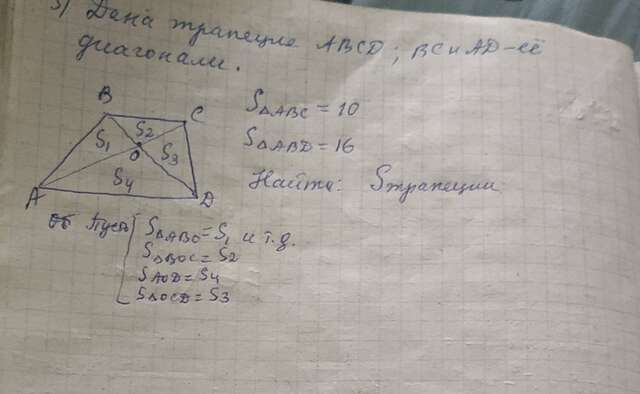 3) Дана трапеция ABCD; BC и AD - её
диагонали.
B
C
S2
S1
O
S3
S4
A
D
S△ABC = 10
S△ABD = 16
Найти: Sтрапеции
Пусть S△ABO = S1 и т.д.
S△BOC = S2
SAOD = S4
S△OCD = S3